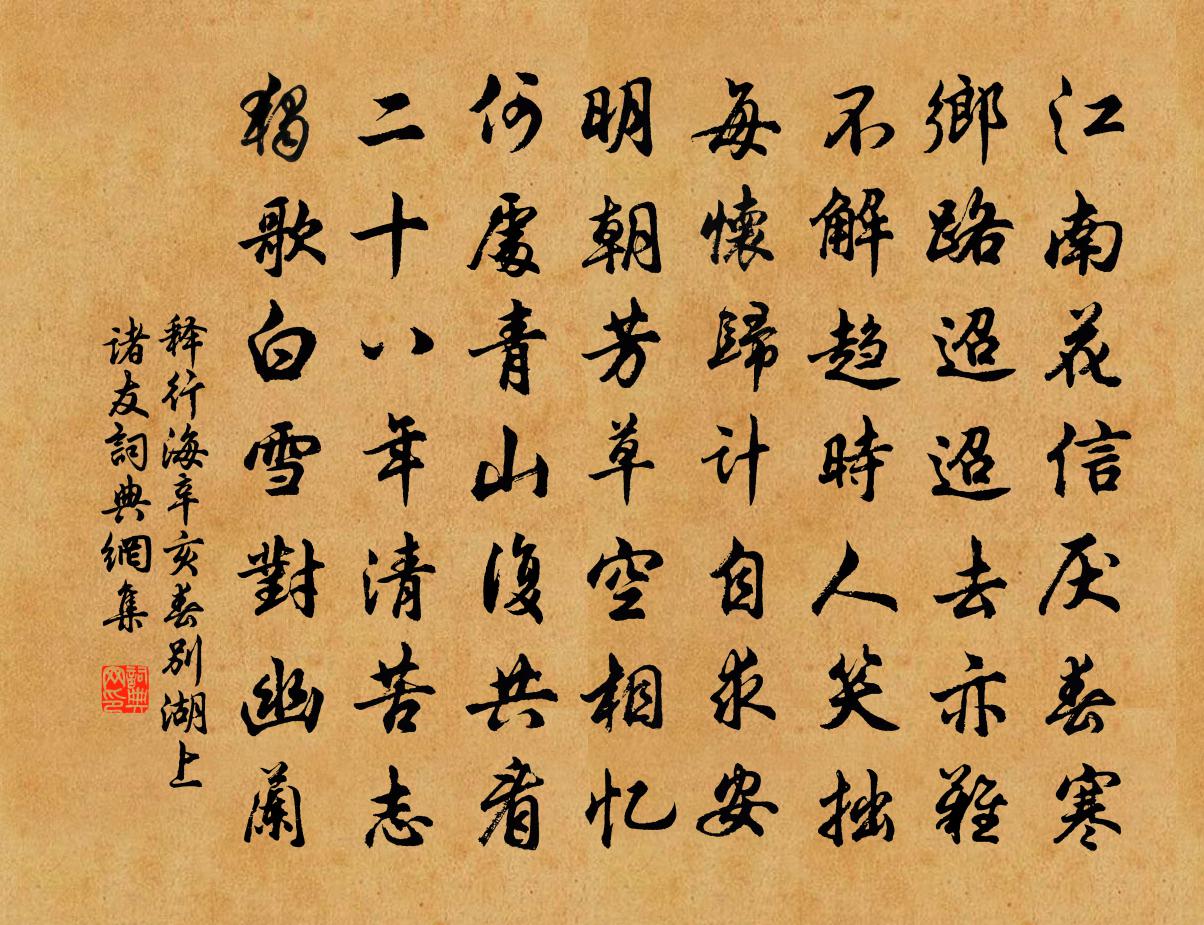 江南花信厌春寒
鄉路迢迢去亦難
不解趨時人笑拙
每懷歸計自求安
明朝芳草空相忆
何處青山復共看
二十八年清苦志
獨歌白雪對幽蘭
释行海辛亥春别湖上
诸友詞典網集
詞典
网印